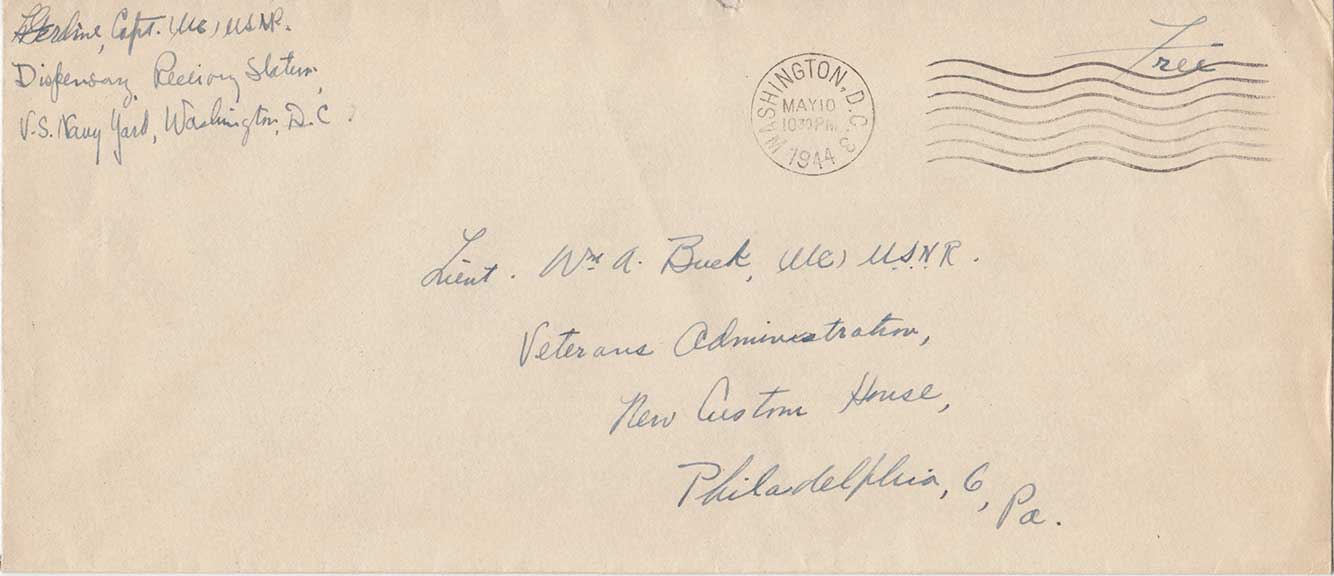 Capt. (MC) USNR.
Dispensary, Receiving Station,
U.S. Navy Yard, Washington, D.C.
WASHINGTON, D.C. 3
MAY 10
10 30 PM
1944
Free
Lieut. Wm A. Buck, (MC) USNR.
Veterans Administration,
New Custom House,
Philadelphia, 6,
Pa.